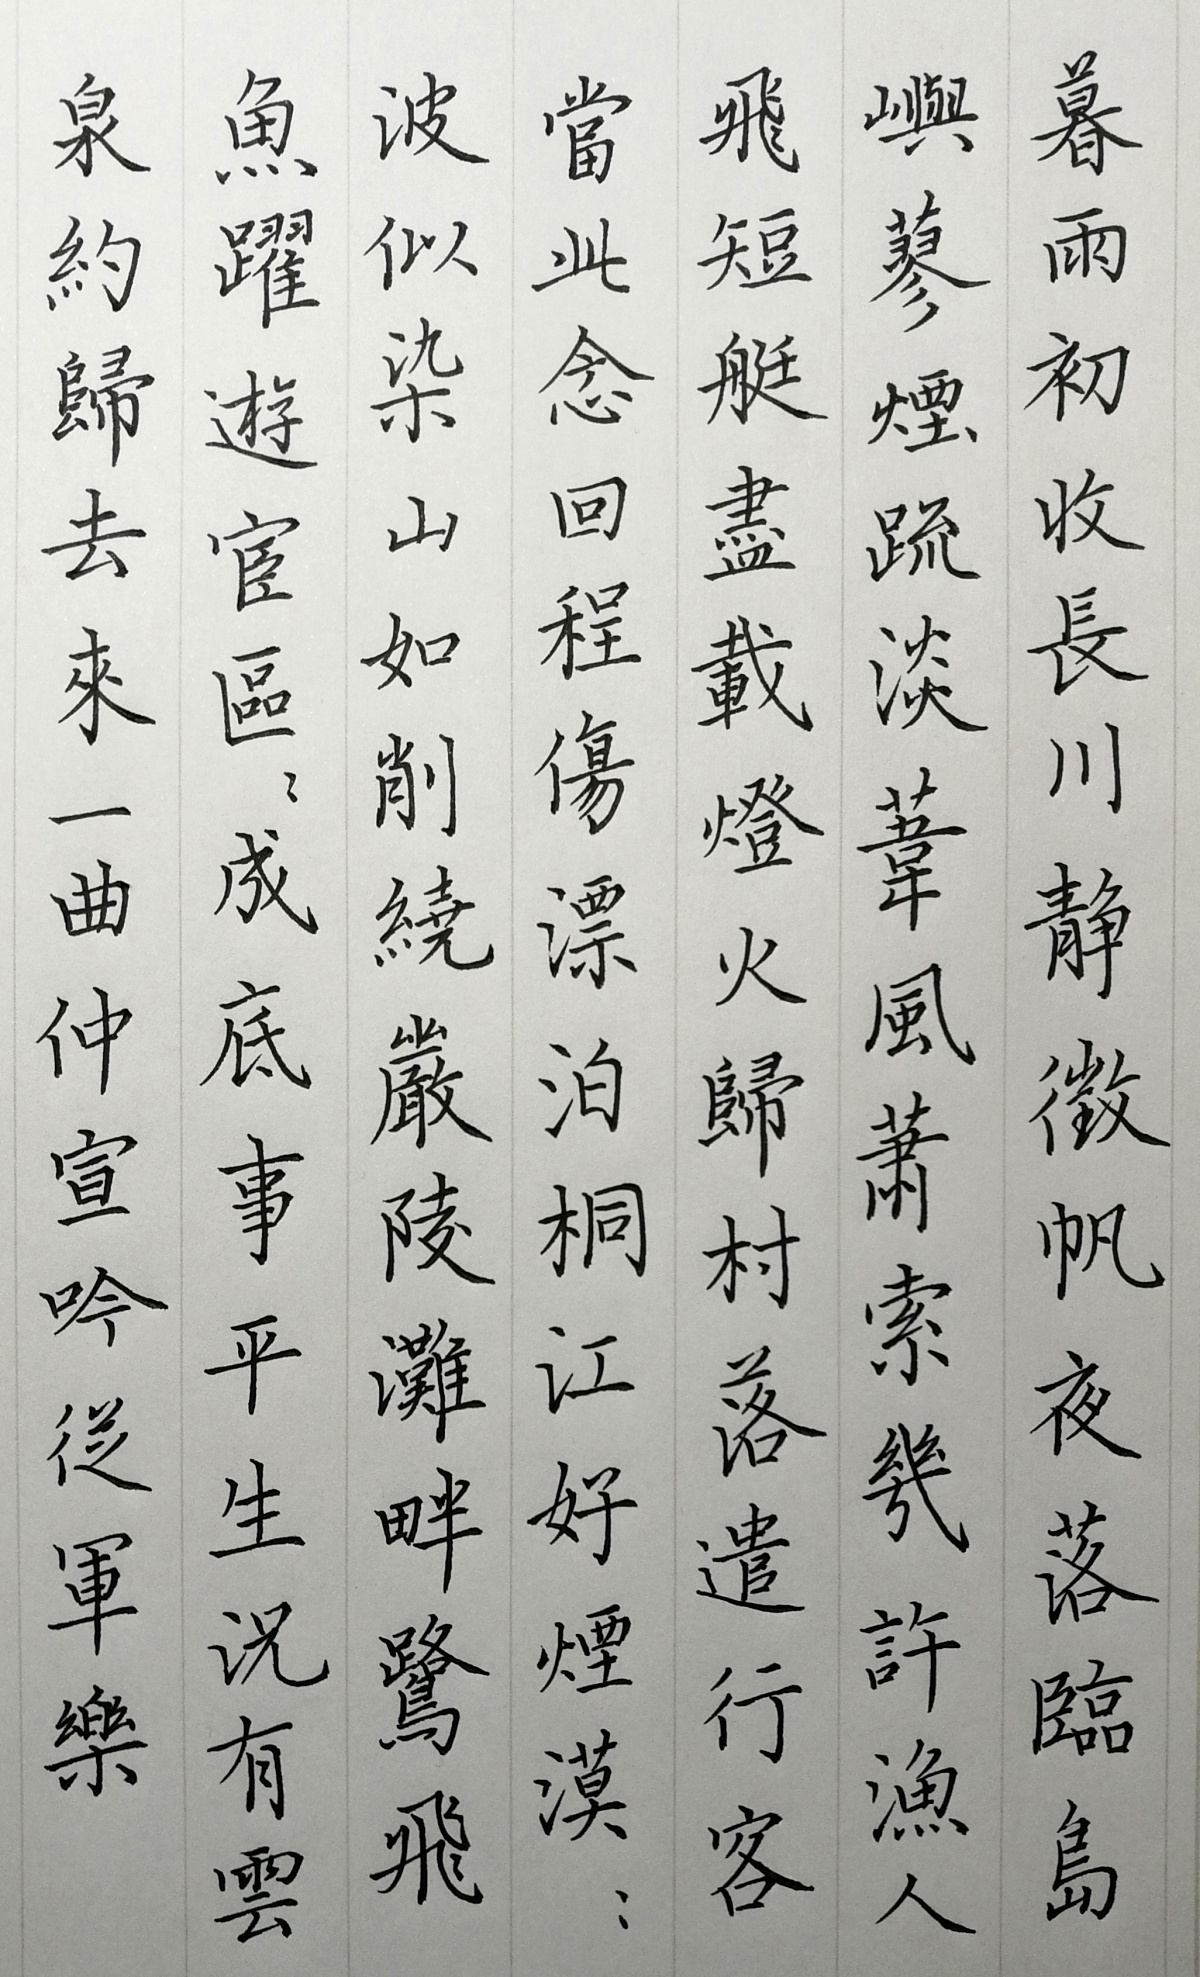 暮雨初收長川静徵帆夜落臨島
嶼蓼煙疏淡葦風蕭索幾許漁人
飛短艇盡載燈火歸村落遣行客
當此念回程傷漂泊桐江好煙漠〻
波似染山如削繞嚴陵灘畔鷺飛
魚躍遊宦區〻成底事平生況有雲
泉約歸去來一曲仲宣吟從軍樂